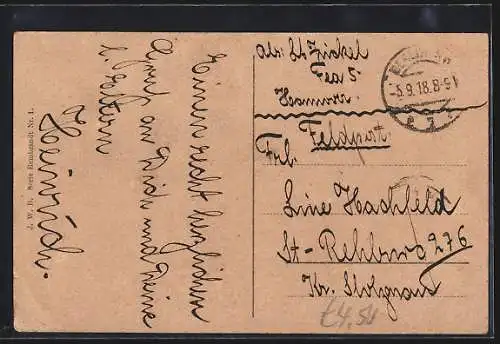 Einen recht herzlichen
Gruß an Dich und Deine
l. Eltern
Heinrich.
J. W. B. Serie Reinhanadt Nr. 1.
Abs.
Fea 5.
Hannover
-5.9.18.8-9V
Feldpost
Frl.
Line Hachfeld
St-Rehburg 276
Kr. Stolzenau
£4.50